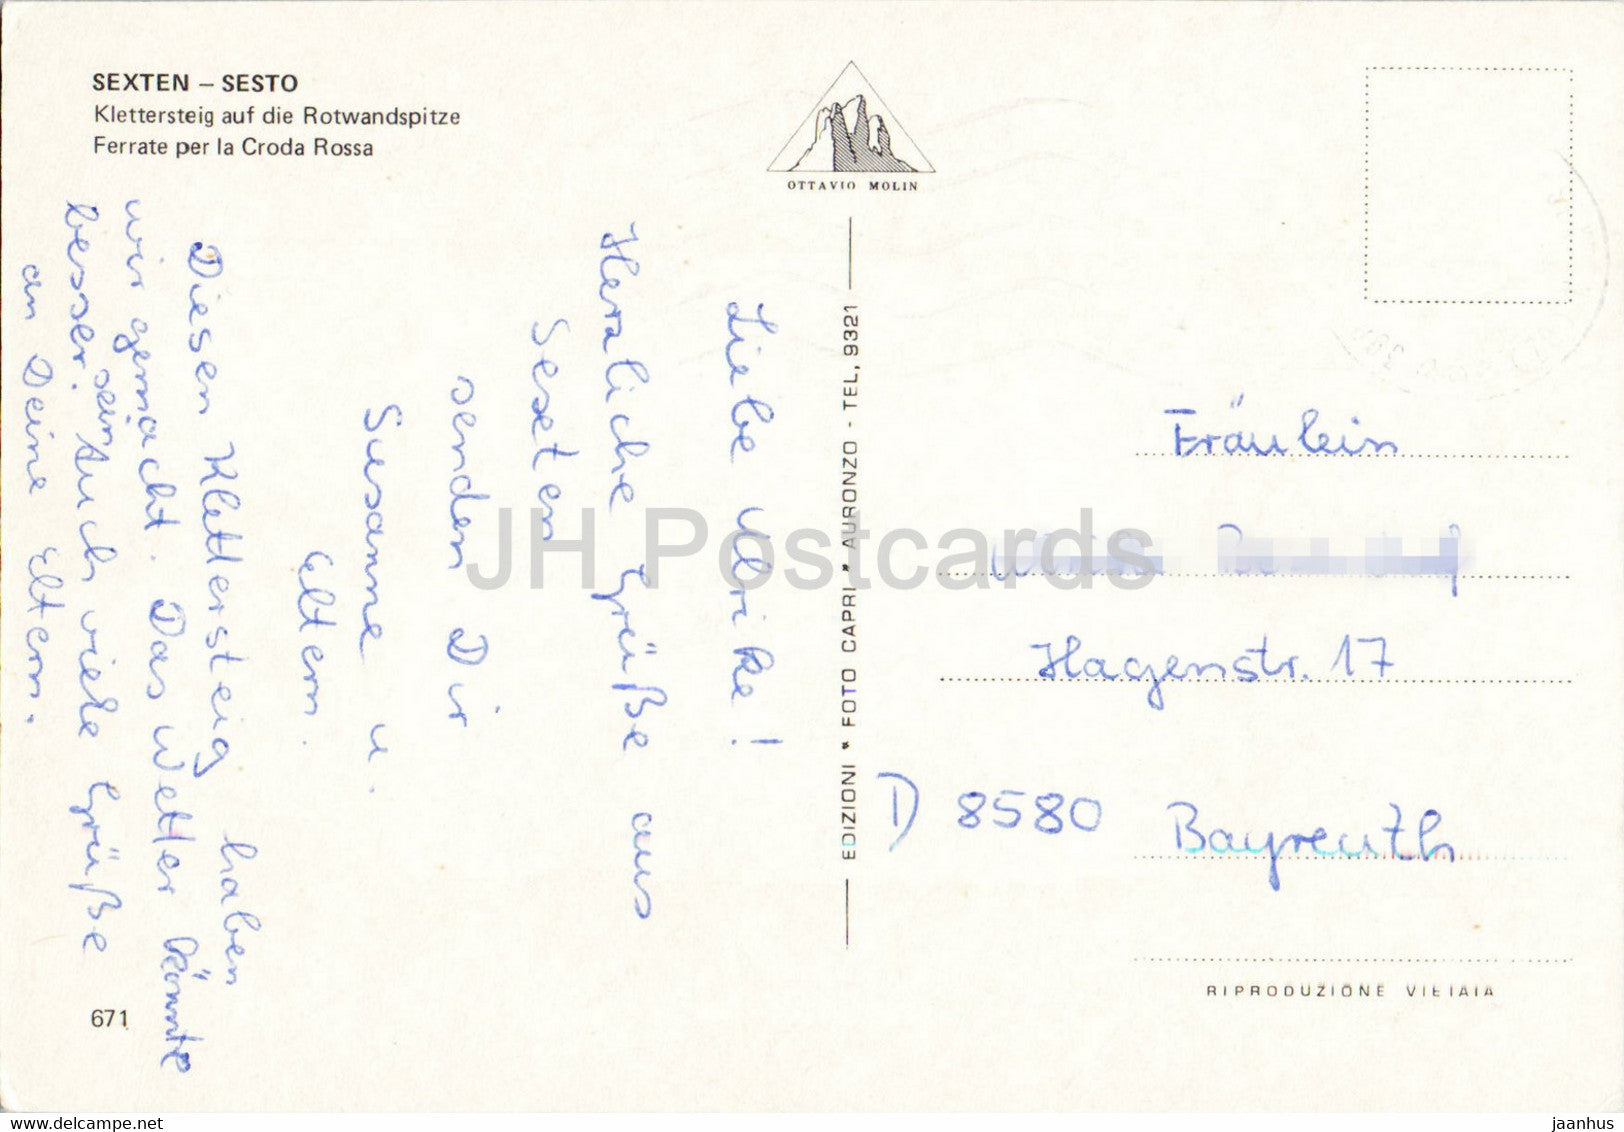 SEXTEN – SESTO
Klettersteig auf die Rotwandspitze
Ferrate per la Croda Rossa
OTTAVIO MOLIN
Liebe Ulrike!
Herzliche Grüße aus
Sexten
senden Dir
Susanne u.
Eltern.
Diesen Klettersteig haben
wir gemacht. Das Wetter könnte
besser sein. Auch viele Grüße
an Deine Eltern.
EDIZIONI * FOTO CAPRI * AURONZO - TEL, 9321
Fräulein
Hagenstr. 17
D 8580 Bayreuth
RIPRODUZIONE VIETATA
671
JH Postcards
www.delcampe.net
jaanhus